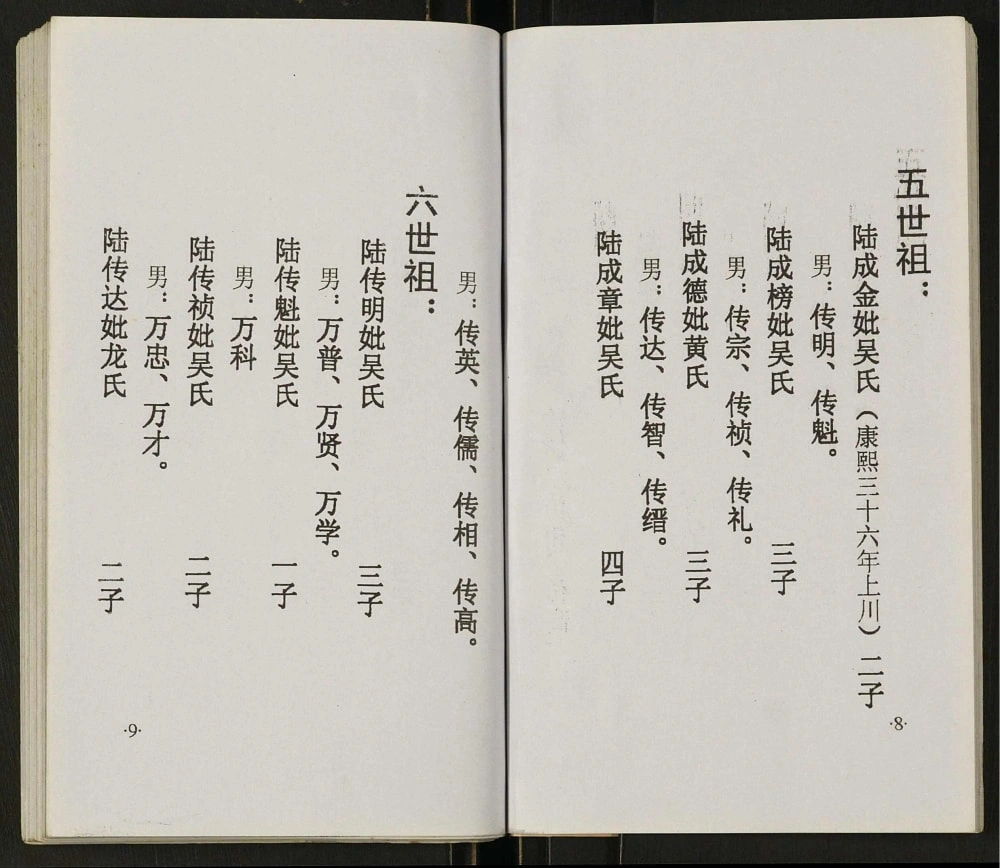 五世祖：
陆成金妣吴氏（康熙三十六年上川）二子
男：传明、传魁。
陆成榜妣吴氏 三子
男：传宗、传祯、传礼。
陆成德妣黄氏 三子
男：传达、传智、传缙。
陆成章妣吴氏 四子
·8·
男：传英、传儒、传相、传高。
六世祖：
陆传明妣吴氏 三子
男：万普、万贤、万学。
陆传魁妣吴氏 一子
男：万科
陆传祯妣吴氏 二子
男：万忠、万才。
陆传达妣龙氏 二子
·9·